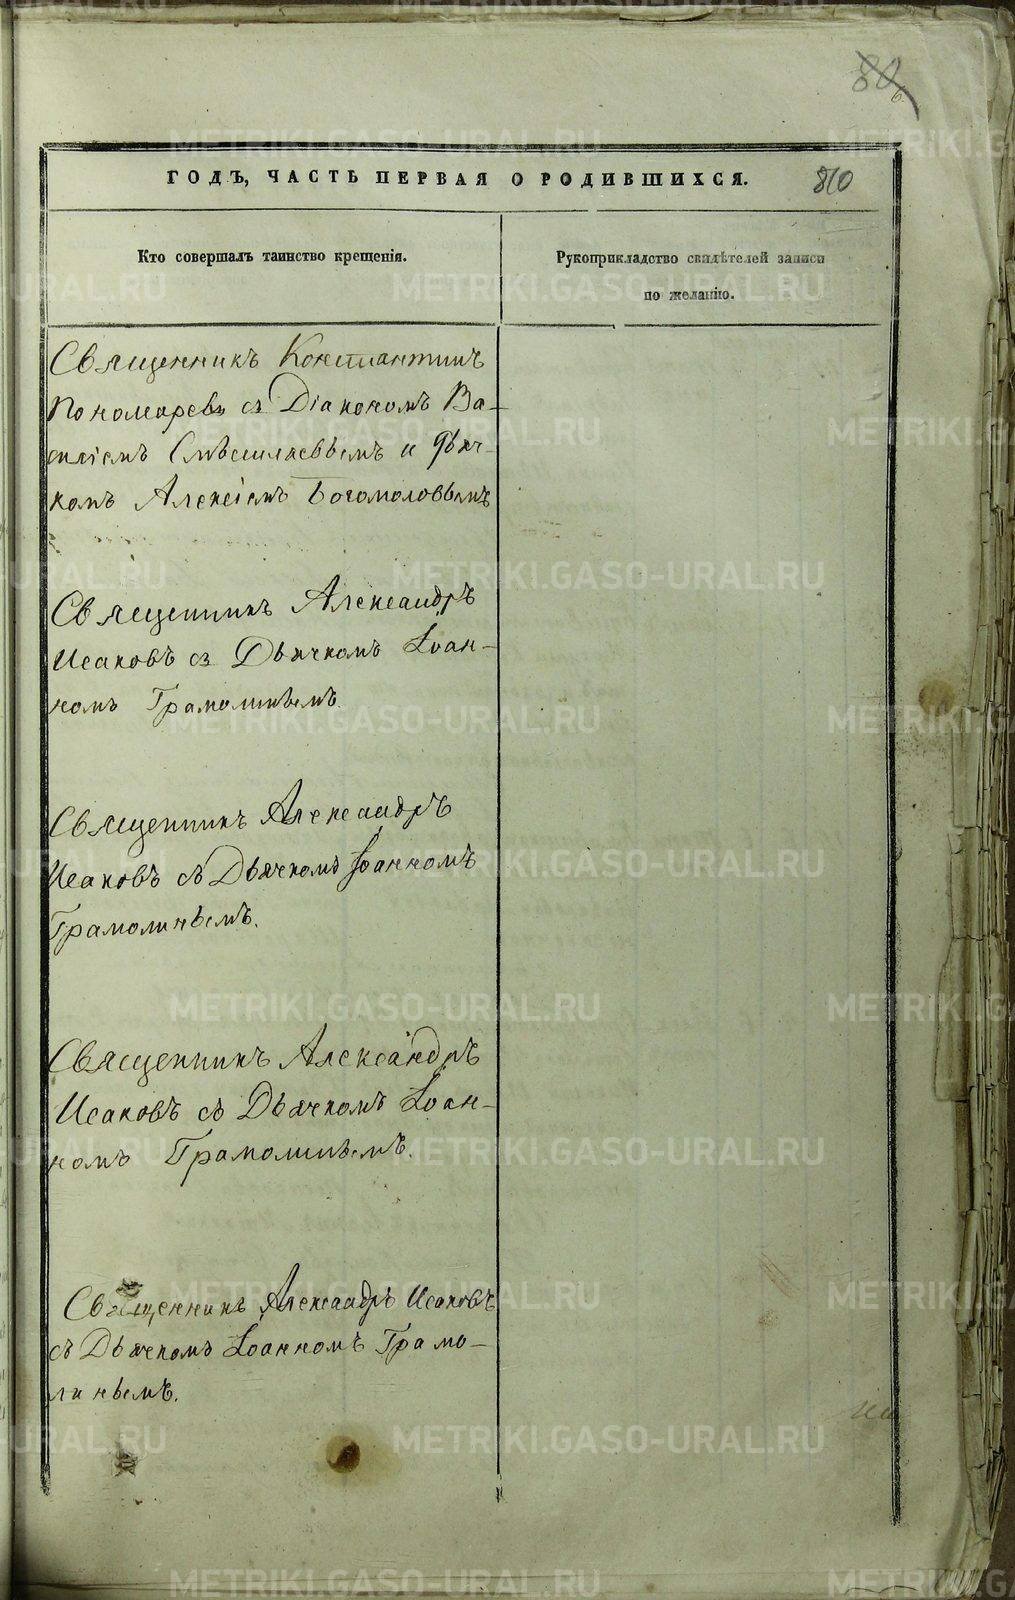 80
ГОДЪ, ЧАСТЬ ПЕРВАЯ О РОДИВШИХСЯ.
810
Кто совершалъ таинство крещенія.
Рукоприкладство свидѣтелей записи
по желанію.
Священникъ Константинъ
Пономаревъ съ Діакономъ Ва-
силіемъ и Дьяч-
комъ Алексіемъ Богомоловымъ
Священникъ Александръ
Исаковъ съ Дьячкомъ Іоан-
номъ Грамолинымъ.
Священникъ Александръ
Исаковъ съ Дьячкомъ Іоанномъ
Грамолинымъ.
Священникъ Александръ
Исаковъ съ Дьячкомъ Іоан-
номъ Грамолинымъ.
Священникъ Александръ Исаковъ
съ Дьячкомъ Іоанномъ Грамо-
линымъ.
METRIKI.GASO-URAL.RU